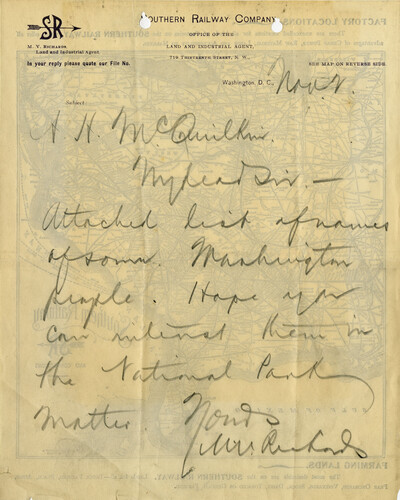 SR
SOUTHERN RAILWAY COMPANY
OFFICE OF THE
LAND AND INDUSTRIAL AGENT,
M. V. RICHARDS
Land and Industrial Agent
In your reply please quote our File No.
SEE MAP ON REVERSE SIDE
Washington, D. C., Nov 2.
Subject
A. H. McQuilkin.
My dear Sir. —
Attached list of names
of some Washington
people. Hope you
can interest them in
the National Park
Matter. Yours
MVRichards